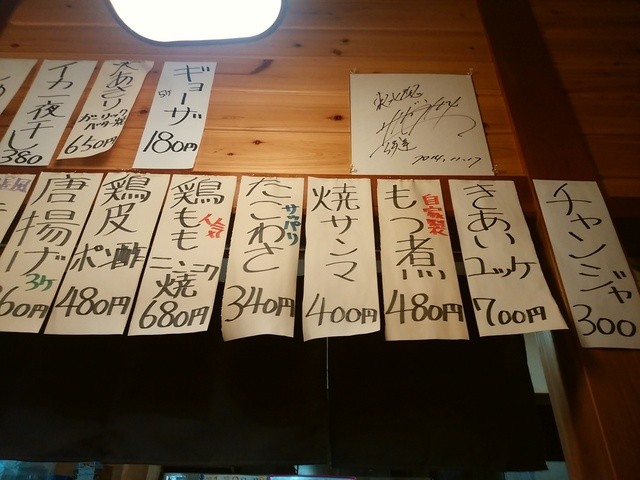 イカ一夜干し
380
大あさり
ガーリック
バター焼
650円
ギョーザ
5ケ
180円
2014.11.17
唐揚げ
3ケ
60円
鶏皮
ポン酢
480円
鶏もも
人気
ニンニク
焼
680円
たこわさ
サッパリ
340円
焼サンマ
400円
自家製
もつ煮
480円
さあい
ユッケ
700円
チャンジャ
300